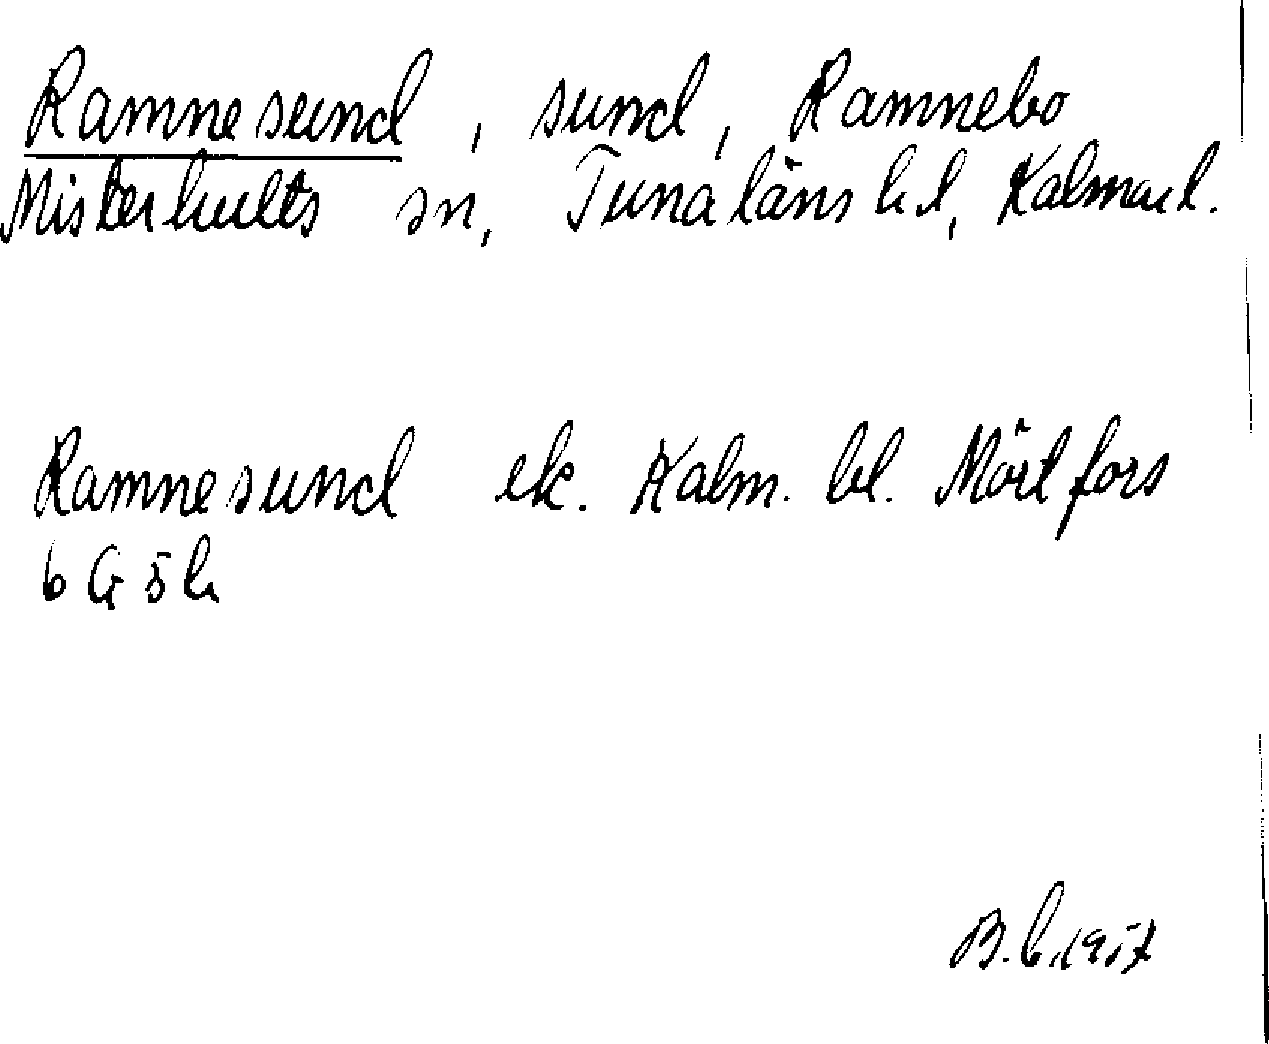 Ramnesund, sund, Ramnebo
Misterhults sn, Tunaläns hd, Kalmar l.
Ramnesund ek. Kalm. bl. Mörtfors
6 G 5 h
B. 1957